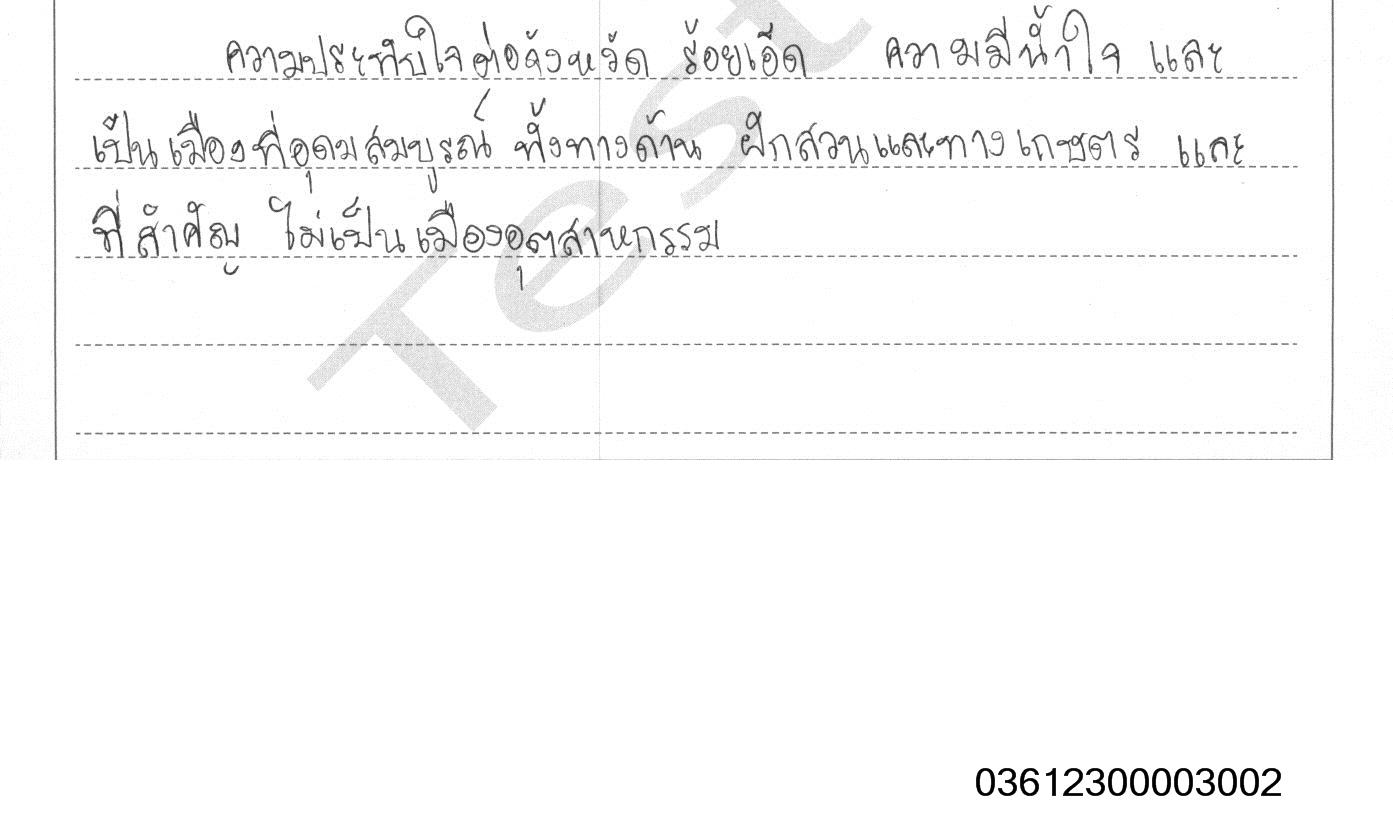 ความประทับใจต่อจังหวัด ร้อยเอ็ด ความมีน้ำใจ และ
เป็นเมืองที่อุดมสมบูรณ์ ทั้งทางด้าน ฝักสวนและทางเกษตร และ
ที่สำคัญ ไม่เป็นเมืองอุตสาหกรรม
Test
03612300003002